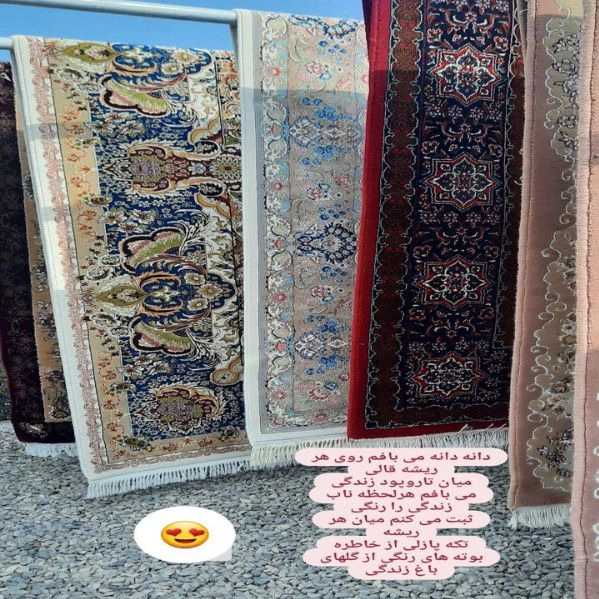 دانه دانه می بافم روی هر
ریشه قالی
میان تاروپود زندگی
می بافم هرلحظه ناب
زندگی را رنگی
ثبت می کنم میان هر
ریشه
تکه پازلی از خاطره
بوته های رنگی از گلهای
باغ زندگی